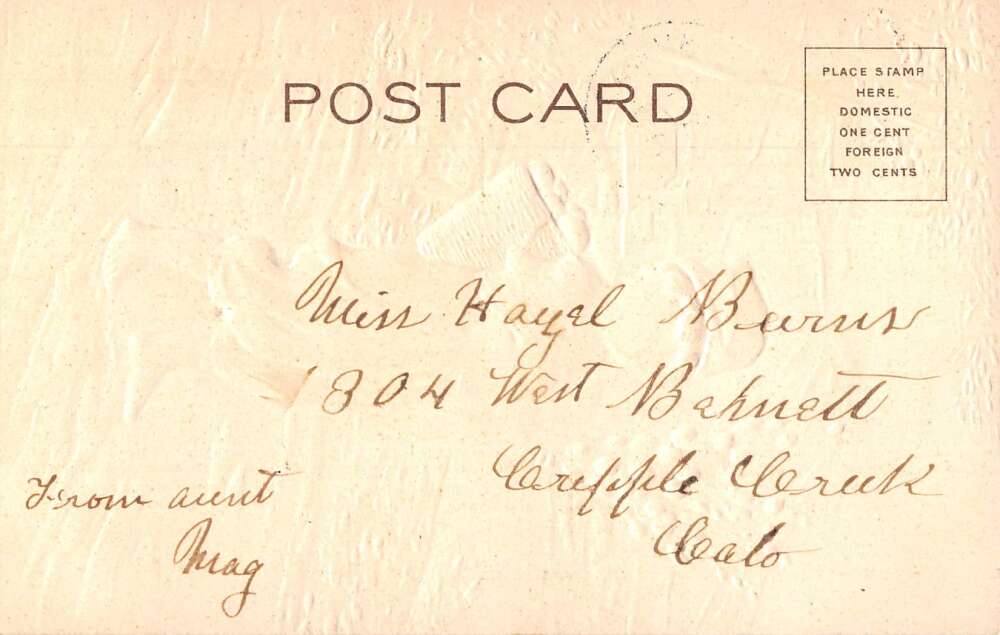 POST CARD
PLACE STAMP
HERE
DOMESTIC
ONE CENT
FOREIGN
TWO CENTS
Miss Hazel Burns
304 West Behnett
Cripple Creek
Colo
From aunt
Mag